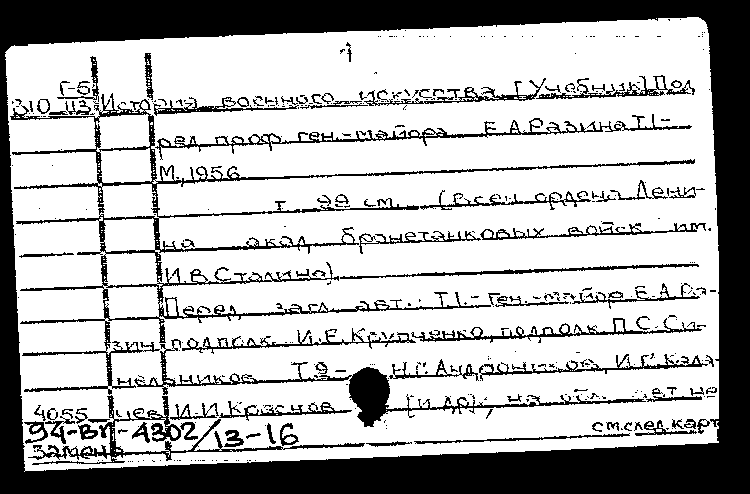 1
Г-5
310 113 История военного искусства [Учебник] Под
ред. проф. ген.-майора Е.А.Разина Т.1-
М., 1956
т. 29 см. (Всен. ордена Лени-
на акад. бронетанковых войск им.
И.В.Сталина).
Перед загл. авт.: Т.1.- Ген.-майор Е.А.Ра-
зин, подполк. И.Е.Крупченко, подполк. П.С.Си-
нельников. Т.2- Н.Г.Андроников, И.Г.Кала-
4055 чев, И.И.Краснов [и др.], на обл. авт. не
94-ВП-4302/13-16 см.след.карт
Замень